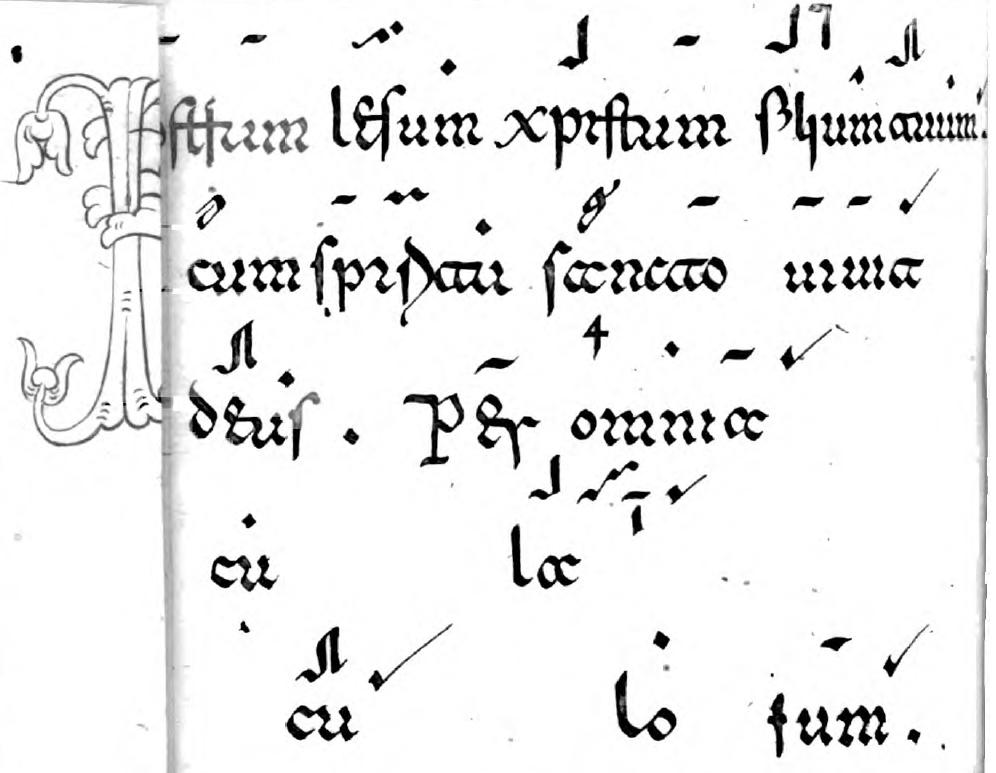 Iesum xpistum filium tuum.
cum spiritu sancto uiuit
deus . Per omnia
cu la
cu lo rum .